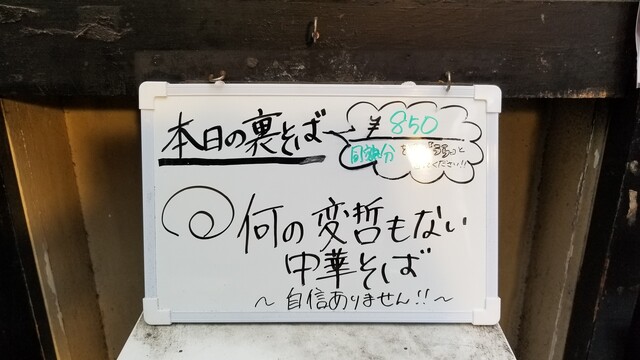 本日の裏そば
¥850
同額分を「うら」と
ください!!
何の変哲もない
中華そば
～自信ありません!!～